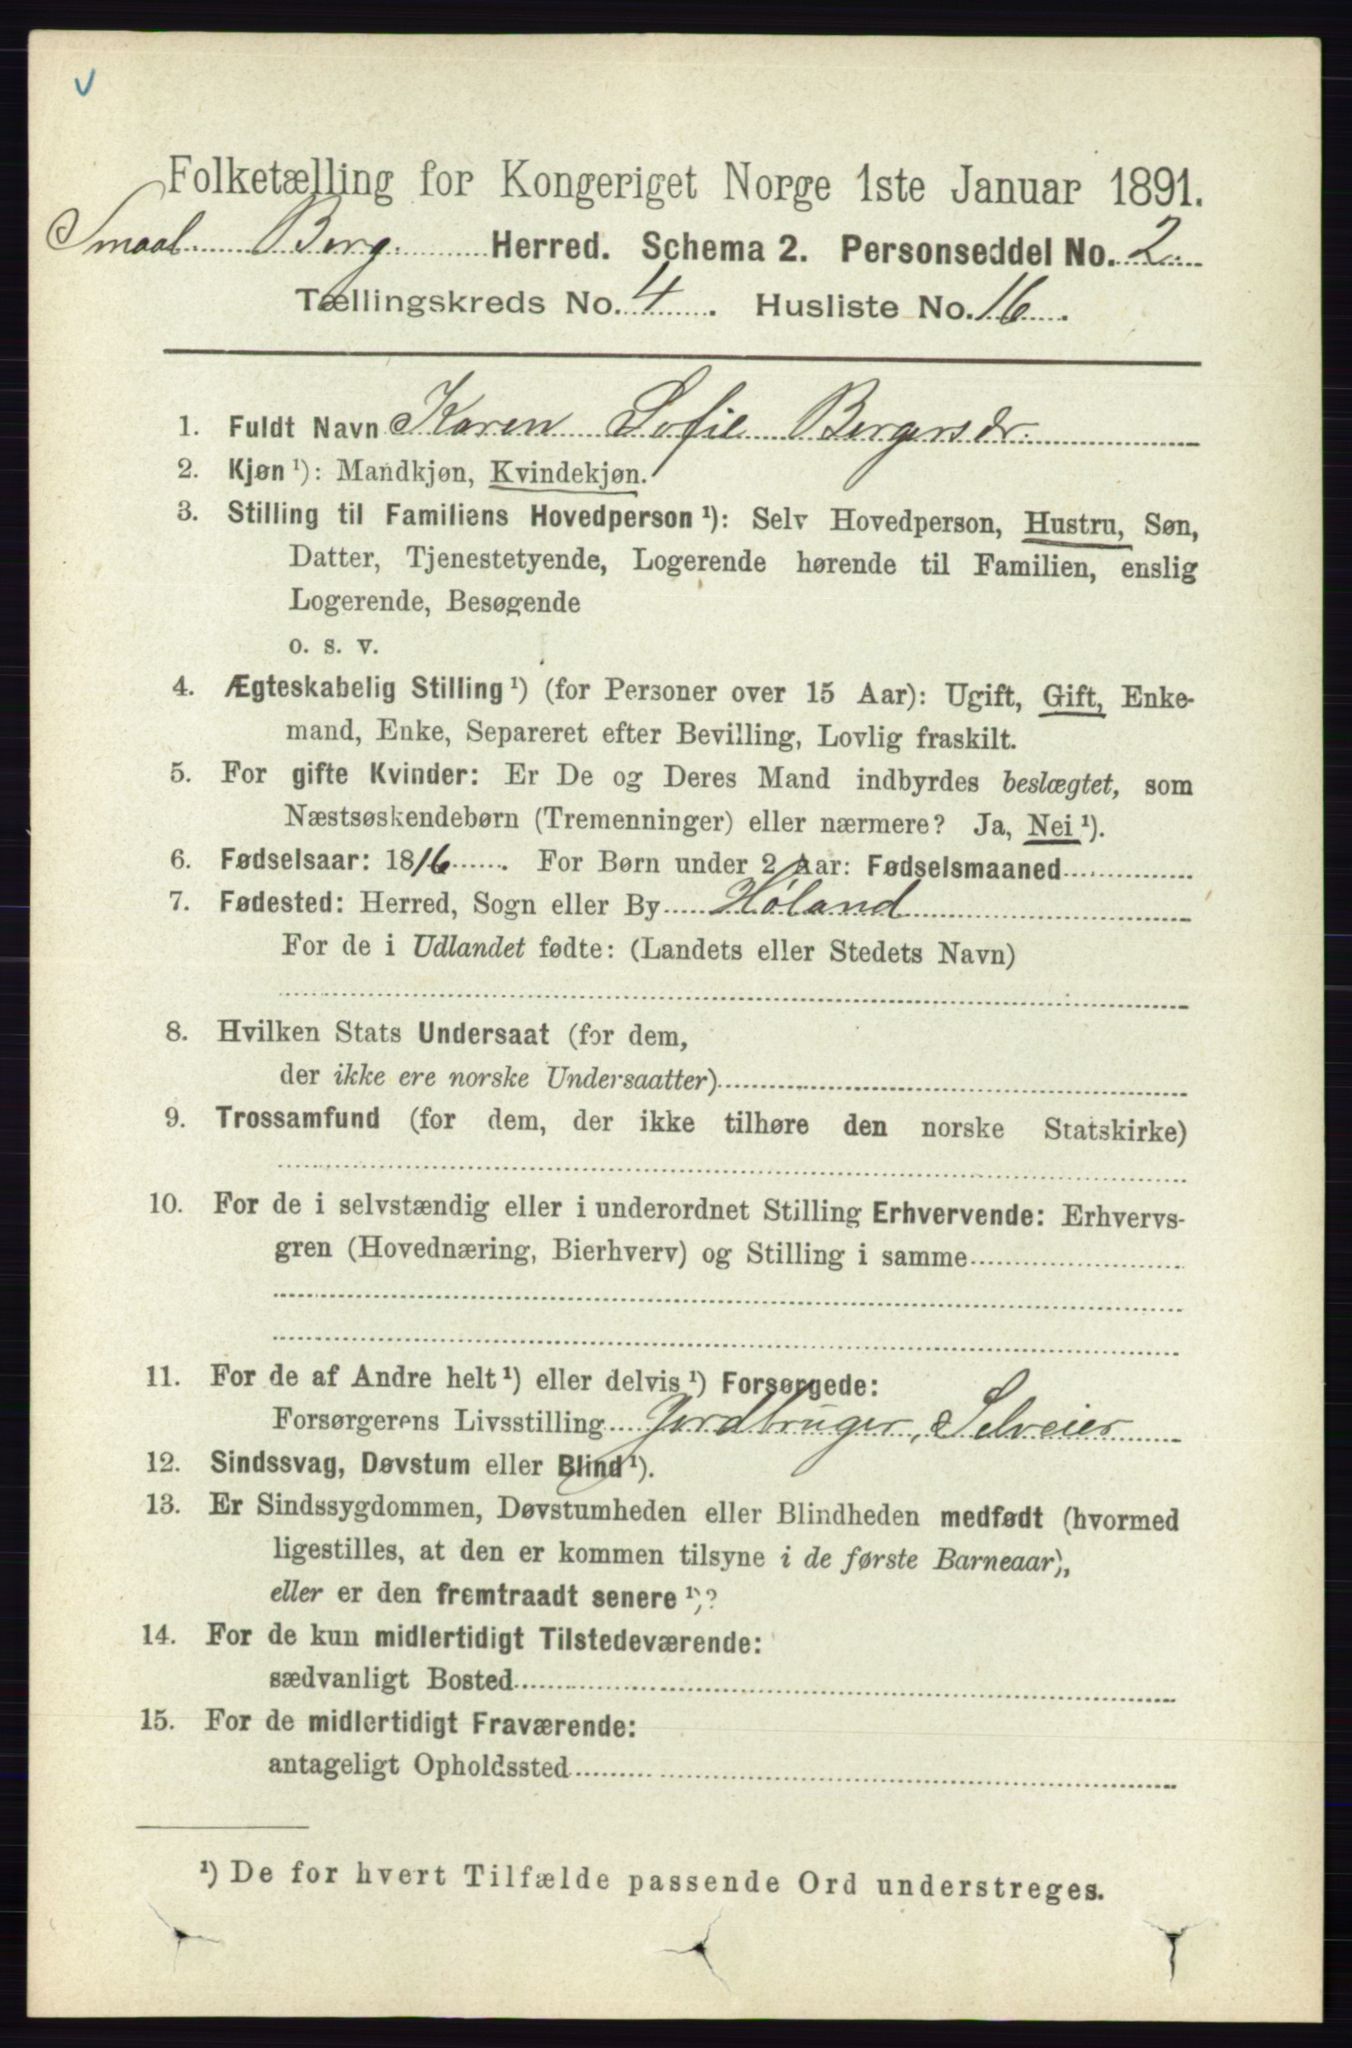 Folketælling for Kongeriget Norge 1ste Januar 1891.
Smaal. Berg. Herred. Schema 2. Personseddel No. 2.
Tællingskreds No. 4. Husliste No. 16.
1. Fuldt Navn Karen Sofie Bergersdr.
2. Kjøn ¹): Mandkjøn, Kvindekjøn.
3. Stilling til Familiens Hovedperson ¹): Selv Hovedperson, Hustru, Søn,
Datter, Tjenestetyende, Logerende hørende til Familien, enslig
Logerende, Besøgende
o. s. v.
4. Ægteskabelig Stilling ¹) (for Personer over 15 Aar): Ugift, Gift, Enke-
mand, Enke, Separeret efter Bevilling, Lovlig fraskilt.
5. For gifte Kvinder: Er De og Deres Mand indbyrdes beslægtet, som
Næstsøskendebørn (Tremenninger) eller nærmere? Ja, Nei ¹).
6. Fødselsaar: 1816. For Børn under 2 Aar: Fødselsmaaned
7. Fødested: Herred, Sogn eller By Høland
For de i Udlandet fødte: (Landets eller Stedets Navn)
8. Hvilken Stats Undersaat (for dem,
der ikke ere norske Undersaatter)
9. Trossamfund (for dem, der ikke tilhøre den norske Statskirke)
10. For de i selvstændig eller i underordnet Stilling Erhvervende: Erhvervs-
gren (Hovednæring, Bierhverv) og Stilling i samme
11. For de af Andre helt ¹) eller delvis ¹) Forsørgede:
Forsørgerens Livsstilling Jordbruger, Selveier
12. Sindssvag, Døvstum eller Blind ¹).
13. Er Sindssygdommen, Døvstumheden eller Blindheden medfødt (hvormed
ligestilles, at den er kommen tilsyne i de første Barneaar),
eller er den fremtraadt senere ¹)?
14. For de kun midlertidigt Tilstedeværende:
sædvanligt Bosted
15. For de midlertidigt Fraværende:
antageligt Opholdssted
¹) De for hvert Tilfælde passende Ord understreges.